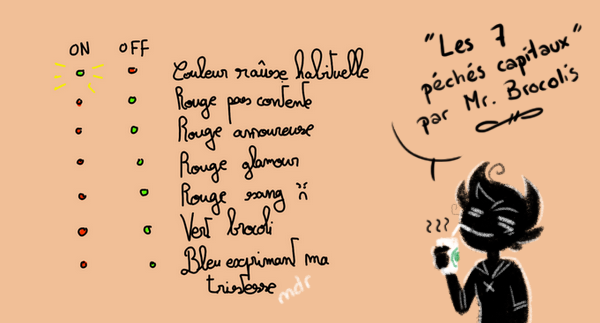 ON OFF
Couleur raûise habituelle
Rouge pas contente
Rouge amoureuse
Rouge glamour
Rouge sang
Vert brocoli
Bleu exprimant ma
tristesse mdr
"Les 7
péchés capitaux"
par Mr. Brocolis